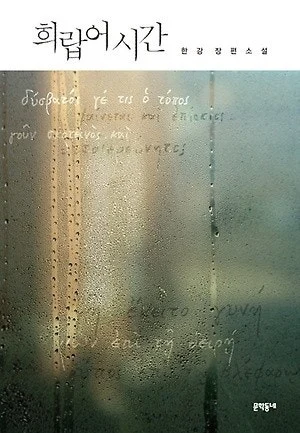 희랍어 시간
한 강 장 편 소 설
δύσβατός γέ τις ὁ τόπος
φαίνεται καὶ ἐπίσκιος
γοῦν σκοτεινὸς καὶ
ἔκειτο γυνή
ἐπὶ τῇ δειρῇ
문학동네